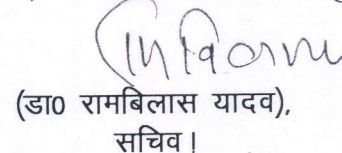 (डा० रामबिलास यादव),
सचिव।